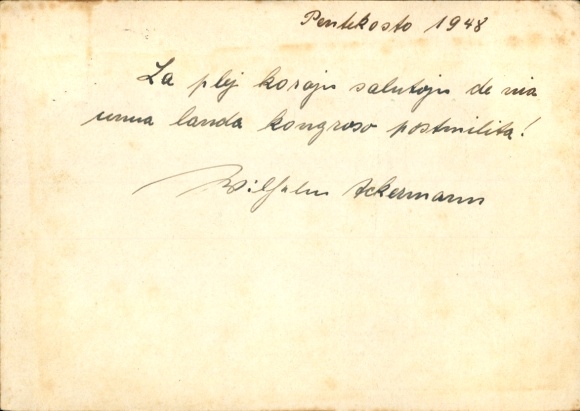 Pentekosto 1948
La plej korajn salutojn de nia
unua landa kongreso postmilita!
Wilhelm Ackermann